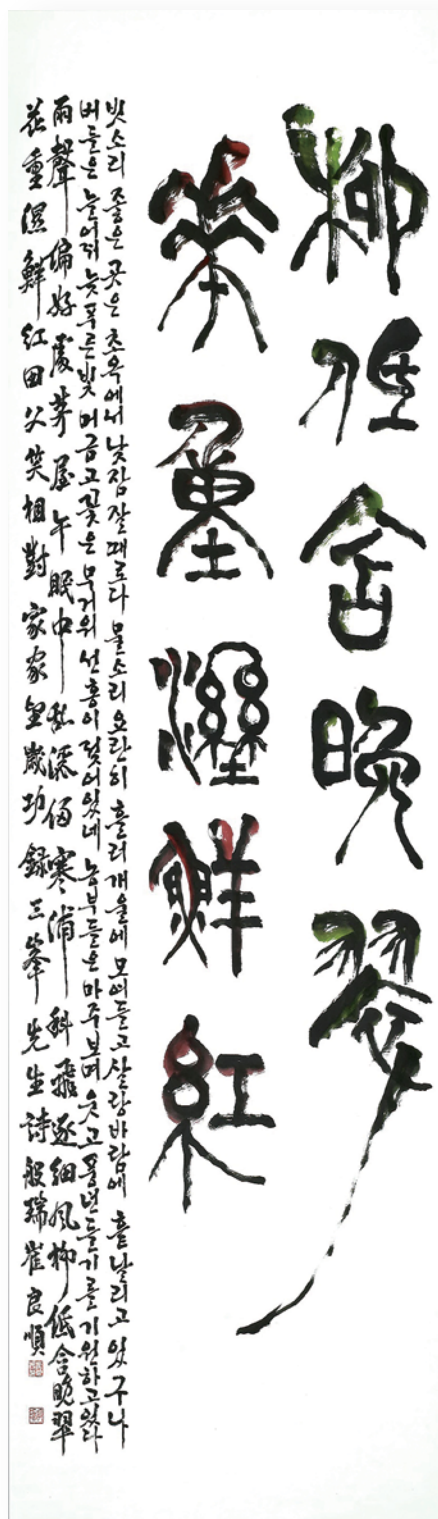 柳低含晚翠
花重濕鮮紅
빗소리 좋은 곳은 초옥에서 낮잠 잘 때로다 물소리 요란히 흘러 개울에 모여들고 살랑바람에 흩날리고 있구나
버들은 늘어져 늦푸른빛 머금고 꽃은 무거워 선홍이 젖어있네 농부들은 마주보며 웃고 풍년들기를 기원하고있다
雨聲偏好處茅屋午眠中乱流侵寒浦斜飛逐細風柳低含晚翠
花重湿鮮紅田父笑相對家家望歲功錄三峯先生詩般瑞崔良順